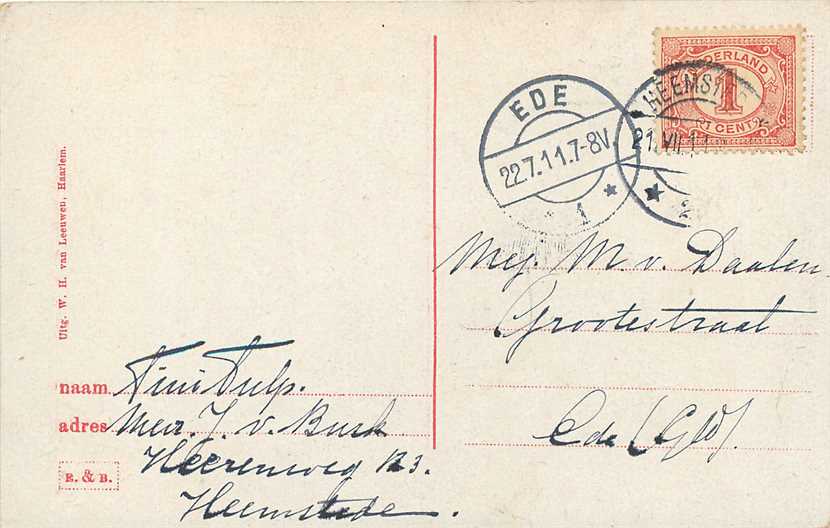 Uitg. W. H. van Leeuwen, Haarlem.
naam Tini Tulp.
adres Mevr. J. v. Burk
Heerenweg 123.
Heemstede.
E. & B.
EDE
22.7.11.7-8V.
1
HEEMST
21.VII.11
NEDERLAND
1
CENT
Mej. M. v. Daalen.
Grootestraat
Ede (G.W).